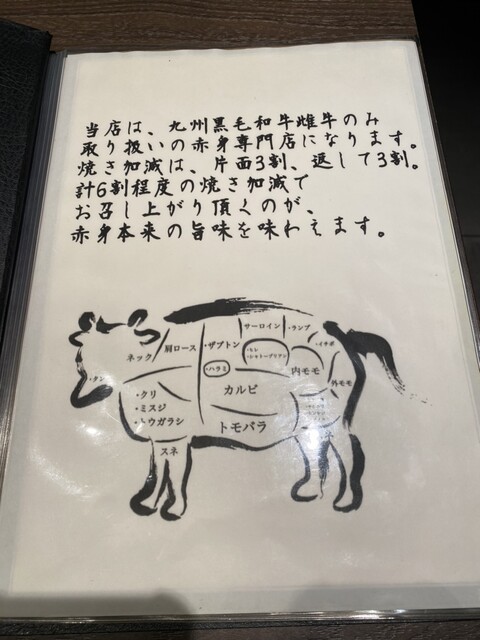 当店は、九州黒毛和牛雌牛のみ
取り扱いの赤身専門店になります。
焼き加減は、片面3割、返して3割。
計6割程度の焼き加減で
お召し上がり頂くのが、
赤身本来の旨味を味わえます。
サーロイン
・ランプ
ネック
肩ロース
・ザブトン
・イチボ
・ヒレ
・シャトーブリアン
・ハラミ
内モモ
・タン
外モモ
・クリ
・ミスジ
・トウガラシ
カルビ
トモバラ
スネ